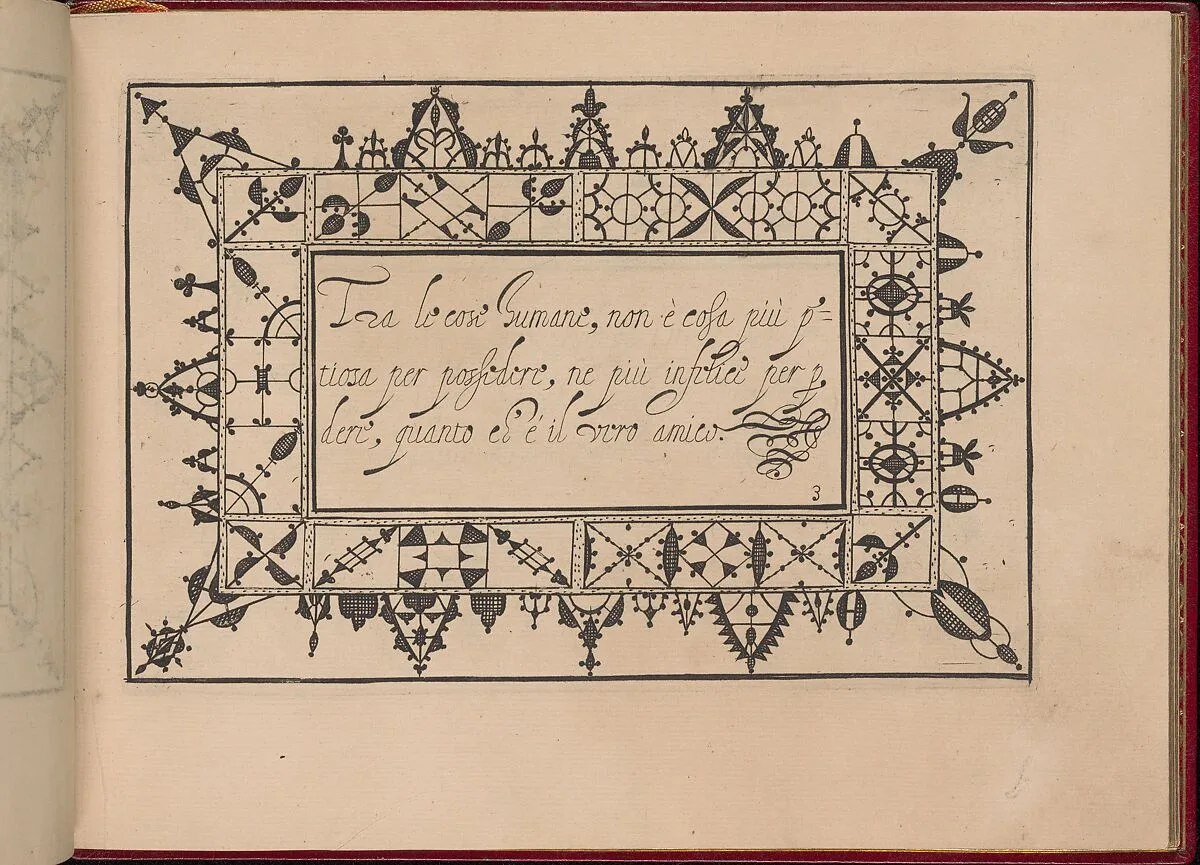 Tra le cose humane, non è cosa più p̱=
tiosa per possedere, ne più infelice per p̱
dere, quanto ch'è il vero amico.
3